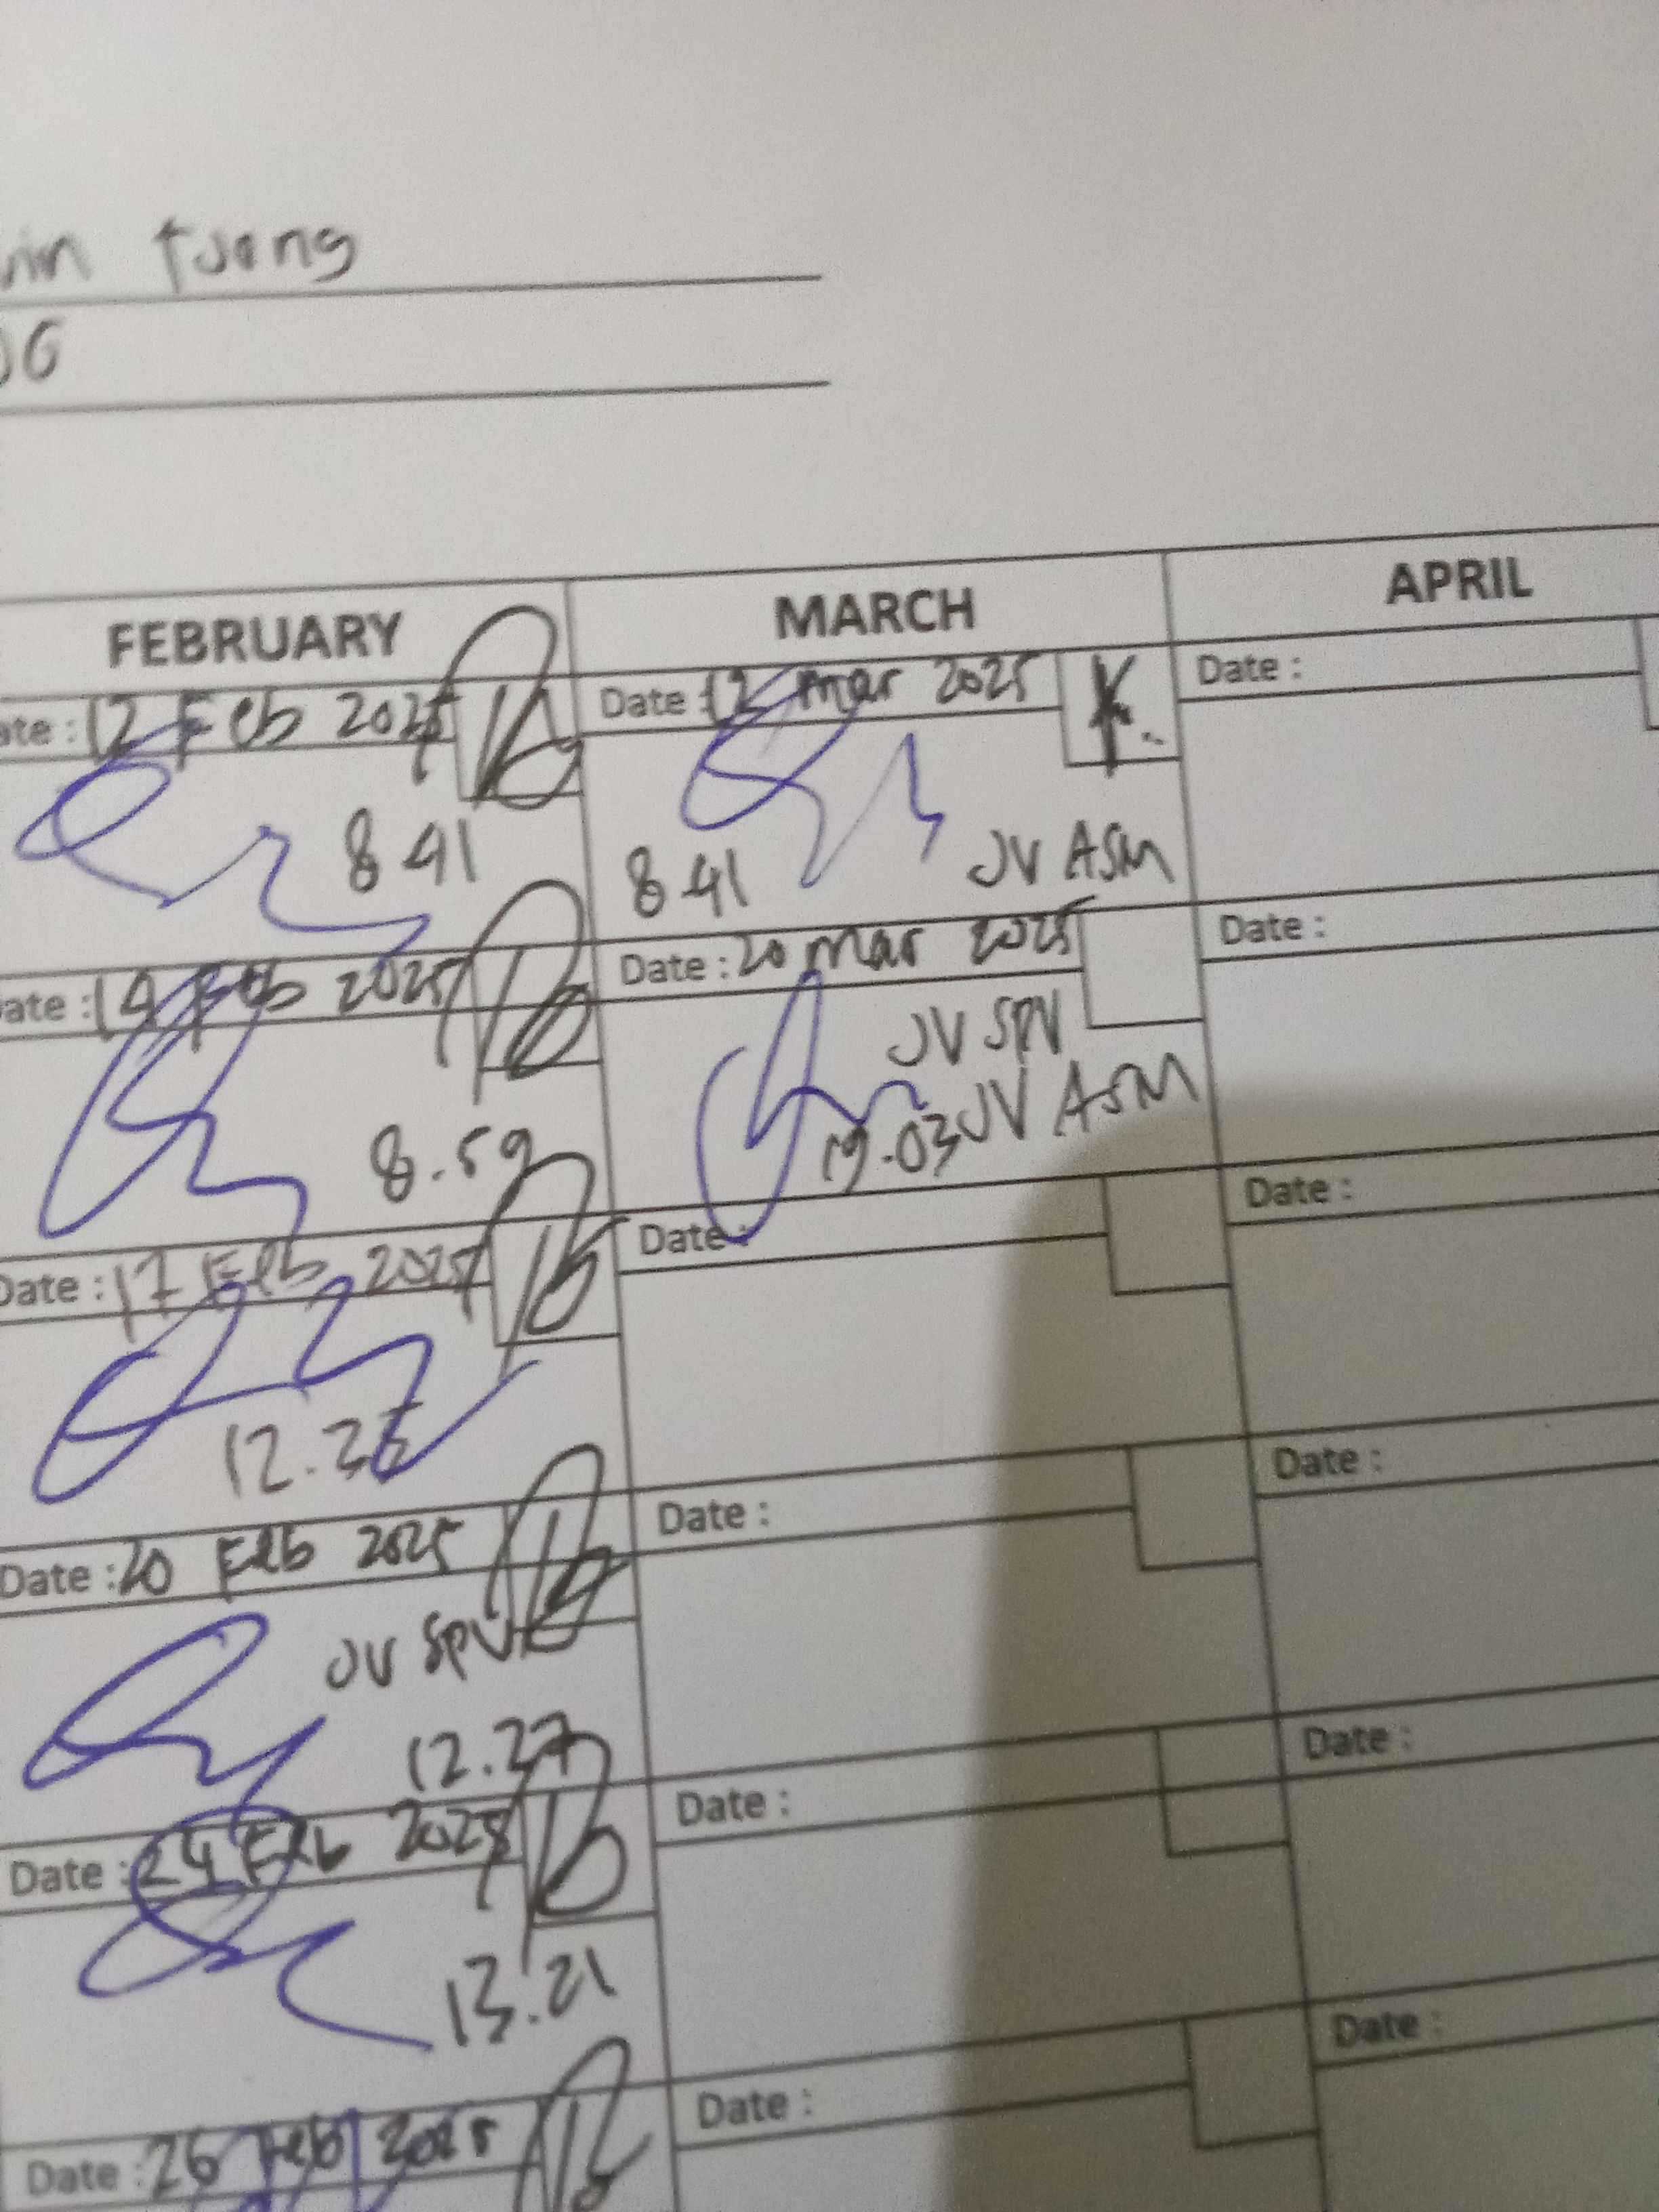 Tjong
06
FEBRUARY
MARCH
APRIL
ate : 12 Feb 2025
8 41
Date : 12 mar 2025
8 41
JV ASM
Date :
ate : 14 Feb 2025
8.59
Date : 20 mar 2025
JV SPV
19.03 JV ASM
Date :
Date : 17 Feb 2025
Date :
Date :
Date : 20 Feb 2025
JV SPV
12.27
Date :
Date :
Date : 24 Feb 2025
13.21
Date :
Date :
Date : 26 Feb 2025
Date :
Date :